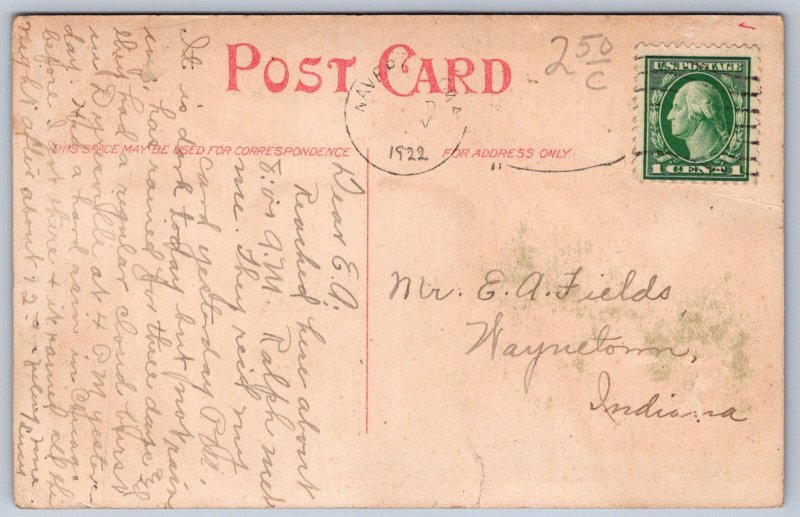 POST CARD
2 50/C
U.S. POSTAGE
1 CENT 1
1922
THIS SPACE MAY BE USED FOR CORRESPONDENCE
FOR ADDRESS ONLY
Mr. E. A. Fields
Waynetown,
Indiana
Dear E.A.
Reached here about
8:00 A.M. Ralph met
me. They rec'd my
card yesterday P.M.
It is dark today but not rain
ing, has rained for three days &
they had a regular cloud burst
in at 4 P.M. yester
day. Had a hard rain in Chicago
before I got there & it rained all the
night after about 12